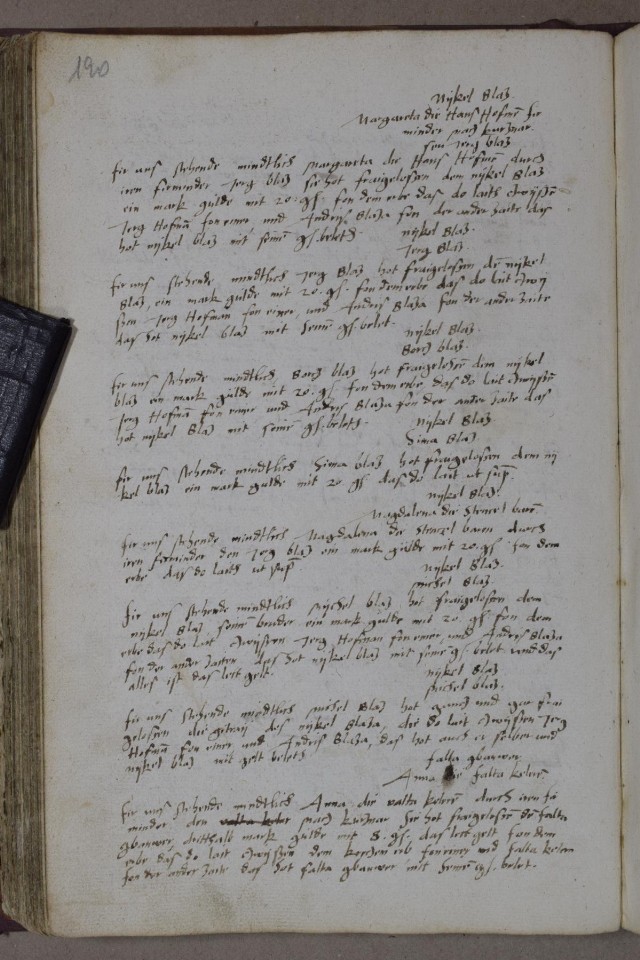 190
Nykel Blaz.
Margareta die Hans Hofmen fir
minder
son Jerg Blaz
fir uns stehende mindtlich Margareta die Hans Hofmen durch
iren firminder Jerg blaz sie hot fraigelossen dem nykel Blaz
ein mark gulde mit 20. gl. fon dem erbe das do laith zwyssen
Jerg Hofman fon einer und Andris Blaza fon der ander zaite das
hot nykel blaz mit seinem gl. belet
nykel Blaz.
Jerg Blaz.
fir uns stehende mindtlich Jerg Blaz hot fraigelossen dem nykel
Blaz, ein mark gulde mit 20. gl. fon dem erbe das do lait zwy
ssen Jerg Hofman fon einer, und Andris Blaza fon der ander zaite
das hot nykel blaz mit seinem gl. belet.
nykel Blaz.
Blaz.
fir uns stehende mindtlich blaz hot fraigelossen dem nykel
blaz ein mark gulde mit 20. gl. fon dem erbe, das do lait zwyssen
Jerg Hofman fon einer und Andris Blaza fon der ander zaite das
hot nykel Blaz mit seinem gl. belet.
Nykel Blaz
Sima Blaz
fir uns stehende mindtlich Sima blaz hot fraigelossen dem ny
kel blaz ein mark gulde mit 20 gl. das do lait ut sup.
nykel Blaz.
Magdalena die Stenzel
fir uns stehende mindtlich Magdalena die Stenzel durch
iren firminder den Jerg blaz ein mark gulde mit 20. gl. fon dem
erbe das do laith ut sup.
nykel Blaz.
michel Blaz.
fir uns stehende mindtlich michel blaz hot fraigelossen dem
nykel Blaz seinem bruder ein mark gulde mit 20. gl. fon dem
erbe das do lait zwyssen Jerg Hofman fon einer, und Andris Blaza
fon der ander zaiten das hot nykel blaz mit seinem gl. belet und das
alles ist das lest gelt.
nykel Blaz
michel blaz.
fir uns stehende mindtlich michel Blaz hot gancz und gor frai
gelossen die des nykel Blaza, die do lait zwyssen Jerg
Hofman fon einer und Andris Blaza, das hot auch er selber und
nykel blaz mit gelt belet
falta gbauwer
Anna die falta
fir uns stehende mindtlich Anna die valta durch iren fir
minder den sie hot fraigelossen dem falta
gbauwer, dritthalb mark gulde mit 8. gl. das lest gelt fon dem
erbe das do lait zwyssen dem erb fon einer und falta
fon der ander zaite das hot falta gbauwer mit seinem gl. belet.